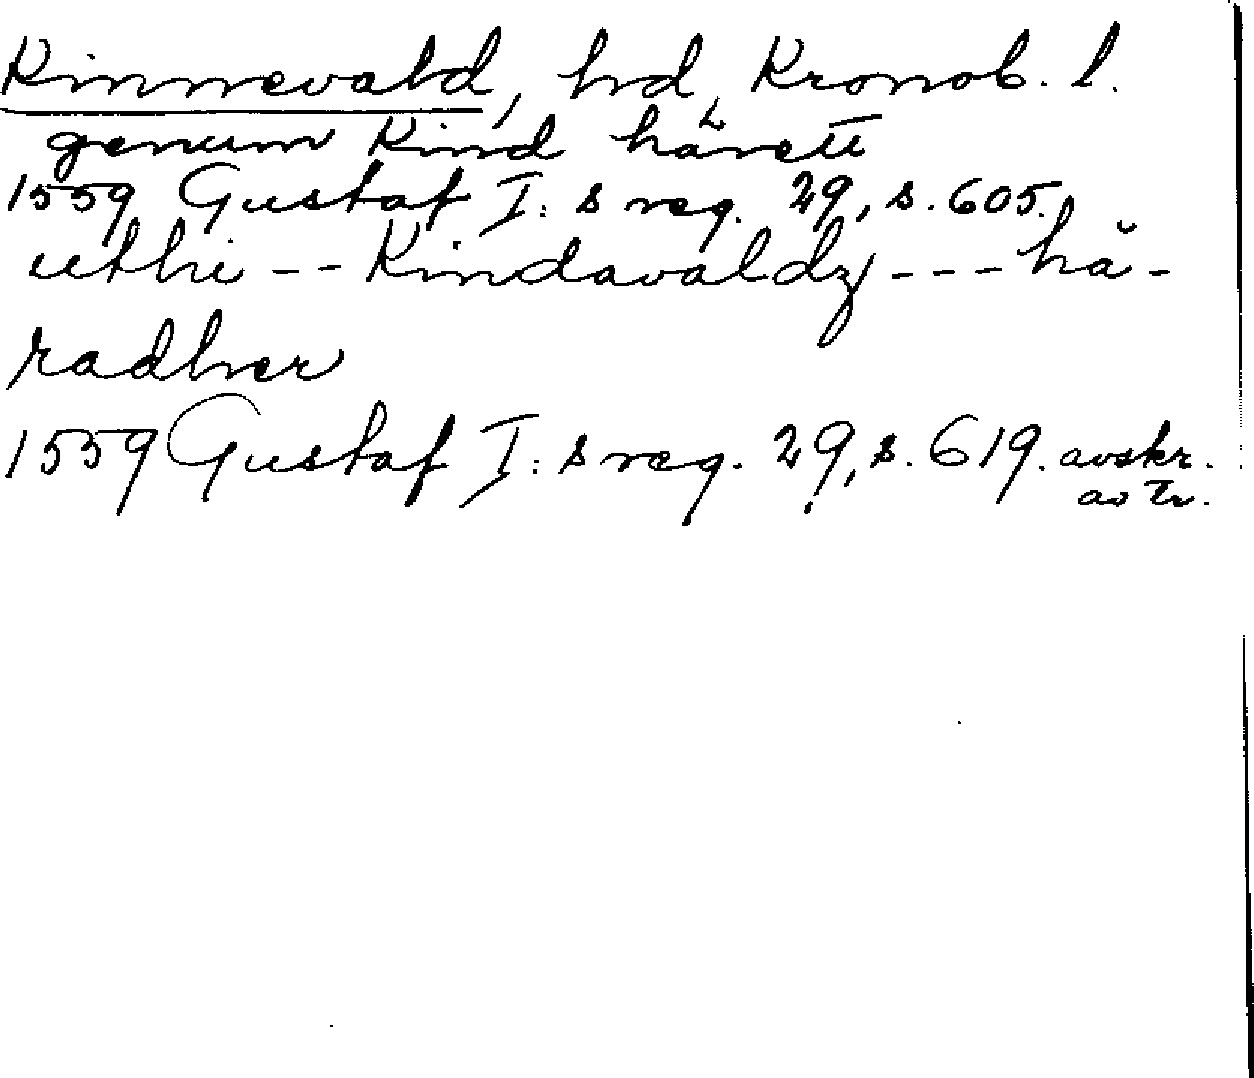 Kinnevald, hd, Kronob. l.
genum Kind härett
1559 Gustaf I:s reg. 29, s. 605.
uthi -- Kindavaldz --- hä-
radher
1559 Gustaf I:s reg. 29, s. 619. avskr.
av Tr.